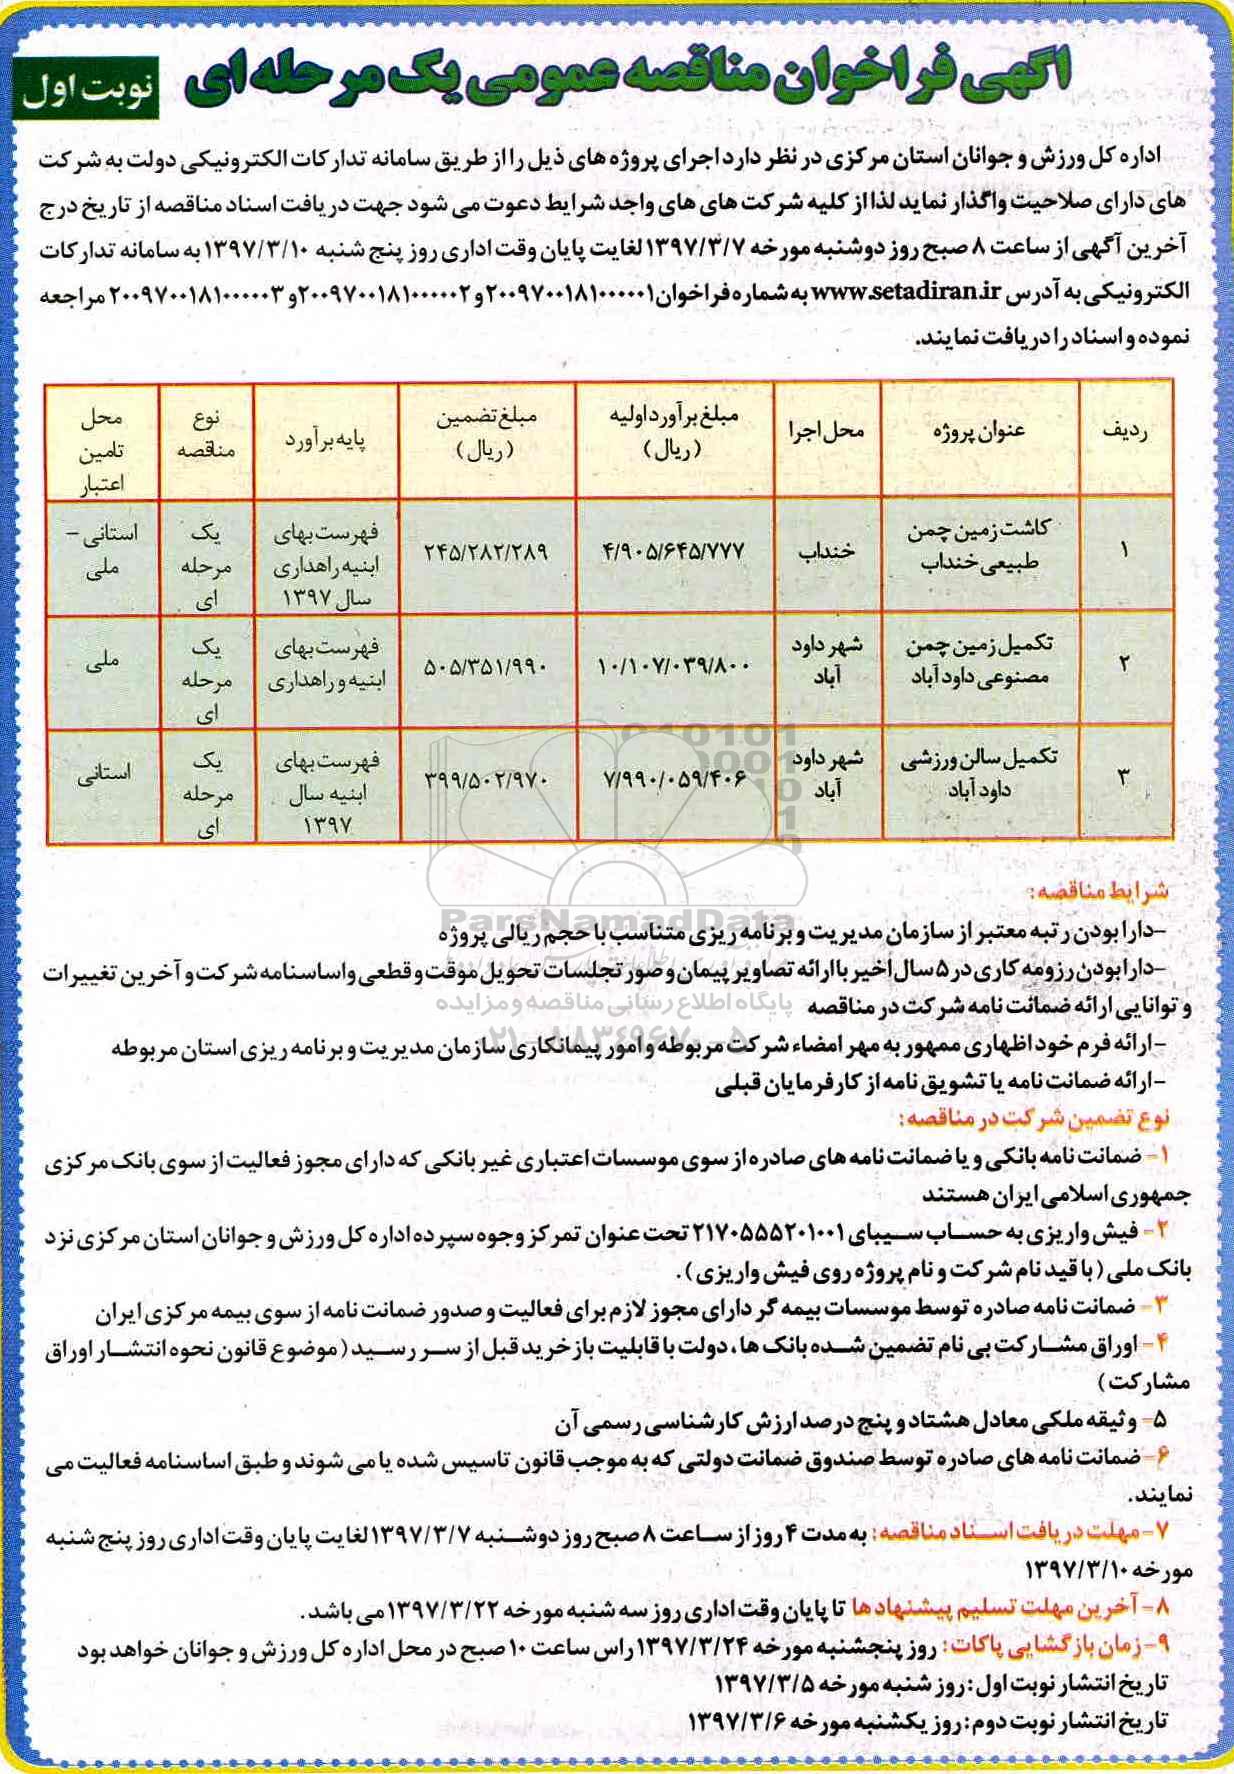 آگهی فراخوان مناقصه عمومی یک مرحله ای
نوبت اول
اداره کل ورزش و جوانان استان مرکزی در نظر دارد اجرای پروژه های ذیل را از طریق سامانه تدارکات الکترونیکی دولت به شرکت
های دارای صلاحیت واگذار نماید لذا از کلیه شرکت های های واجد شرایط دعوت می شود جهت دریافت اسناد مناقصه از تاریخ درج
آخرین آگهی از ساعت ۸ صبح روز دوشنبه مورخه ۱۳۹۷/۳/۷ لغایت پایان وقت اداری روز پنج شنبه ۱۳۹۷/۳/۱۰ به سامانه تدارکات
الکترونیکی به آدرس www.setadiran.ir به شماره فراخوان ۲۰۰۹۷۰۰۱۸۱۰۰۰۰۰۱ و ۲۰۰۹۷۰۰۱۸۱۰۰۰۰۰۲ و ۲۰۰۹۷۰۰۱۸۱۰۰۰۰۰۳ مراجعه
نموده و اسناد را دریافت نمایند.
ردیف عنوان پروژه محل اجرا مبلغ برآورد اولیه (ریال) مبلغ تضمین (ریال) پایه برآورد نوع مناقصه محل تامین اعتبار
۱ کاشت زمین چمن طبیعی خنداب خنداب ۴/۹۰۵/۶۴۵/۷۷۷ ۲۴۵/۲۸۲/۲۸۹ فهرست بهای ابنیه راهداری سال ۱۳۹۷ یک مرحله ای استانی - ملی
۲ تکمیل زمین چمن مصنوعی داود آباد شهر داود آباد ۱۰/۱۰۷/۰۳۹/۸۰۰ ۵۰۵/۳۵۱/۹۹۰ فهرست بهای ابنیه و راهداری یک مرحله ای ملی
۳ تکمیل سالن ورزشی داود آباد شهر داود آباد ۷/۹۹۰/۰۵۹/۴۰۶ ۳۹۹/۵۰۲/۹۷۰ فهرست بهای ابنیه سال ۱۳۹۷ یک مرحله ای استانی
شرایط مناقصه:
-دارا بودن رتبه معتبر از سازمان مدیریت و برنامه ریزی متناسب با حجم ریالی پروژه
ParsNamadData
-دارا بودن رزومه کاری در ۵ سال اخیر با ارائه تصاویر پیمان و صورتجلسات تحویل موقت و قطعی و اساسنامه شرکت و آخرین تغییرات
و توانایی ارائه ضمانت نامه شرکت در مناقصه
پایگاه اطلاع رسانی مناقصه و مزایده
-ارائه فرم خود اظهاری ممهور به مهر امضاء شرکت مربوطه و امور پیمانکاری سازمان مدیریت و برنامه ریزی استان مربوطه
۰۲۱-۸۸۳۴۹۶۷۰-۵
-ارائه ضمانت نامه یا تشویق نامه از کارفرمایان قبلی
نوع تضمین شرکت در مناقصه:
۱- ضمانت نامه بانکی و یا ضمانت نامه های صادره از سوی موسسات اعتباری غیر بانکی که دارای مجوز فعالیت از سوی بانک مرکزی
جمهوری اسلامی ایران هستند
۲- فیش واریزی به حساب سیبای ۲۱۷۰۵۵۵۲۰۱۰۰۱ تحت عنوان تمرکز وجوه سپرده اداره کل ورزش و جوانان استان مرکزی نزد
بانک ملی (با قید نام شرکت و نام پروژه روی فیش واریزی).
۳- ضمانت نامه صادره توسط موسسات بیمه گر دارای مجوز لازم برای فعالیت و صدور ضمانت نامه از سوی بیمه مرکزی ایران
۴- اوراق مشارکت بی نام تضمین شده بانک ها، دولت با قابلیت باز خرید قبل از سر رسید (موضوع قانون نحوه انتشار اوراق
مشارکت)
۵- وثیقه ملکی معادل هشتاد و پنج درصد ارزش کارشناسی رسمی آن
۶- ضمانت نامه های صادره توسط صندوق ضمانت دولتی که به موجب قانون تاسیس شده یا می شوند و طبق اساسنامه فعالیت می
نمایند.
۷- مهلت دریافت اسناد مناقصه: به مدت ۴ روز از ساعت ۸ صبح روز دوشنبه ۱۳۹۷/۳/۷ لغایت پایان وقت اداری روز پنج شنبه
مورخه ۱۳۹۷/۳/۱۰
۸- آخرین مهلت تسلیم پیشنهادها تا پایان وقت اداری روز سه شنبه مورخه ۱۳۹۷/۳/۲۲ می باشد.
۹- زمان بازگشایی پاکات: روز پنجشنبه مورخه ۱۳۹۷/۳/۲۴ راس ساعت ۱۰ صبح در محل اداره کل ورزش و جوانان خواهد بود
تاریخ انتشار نوبت اول: روز شنبه مورخه ۱۳۹۷/۳/۵
تاریخ انتشار نوبت دوم: روز یکشنبه مورخه ۱۳۹۷/۳/۶